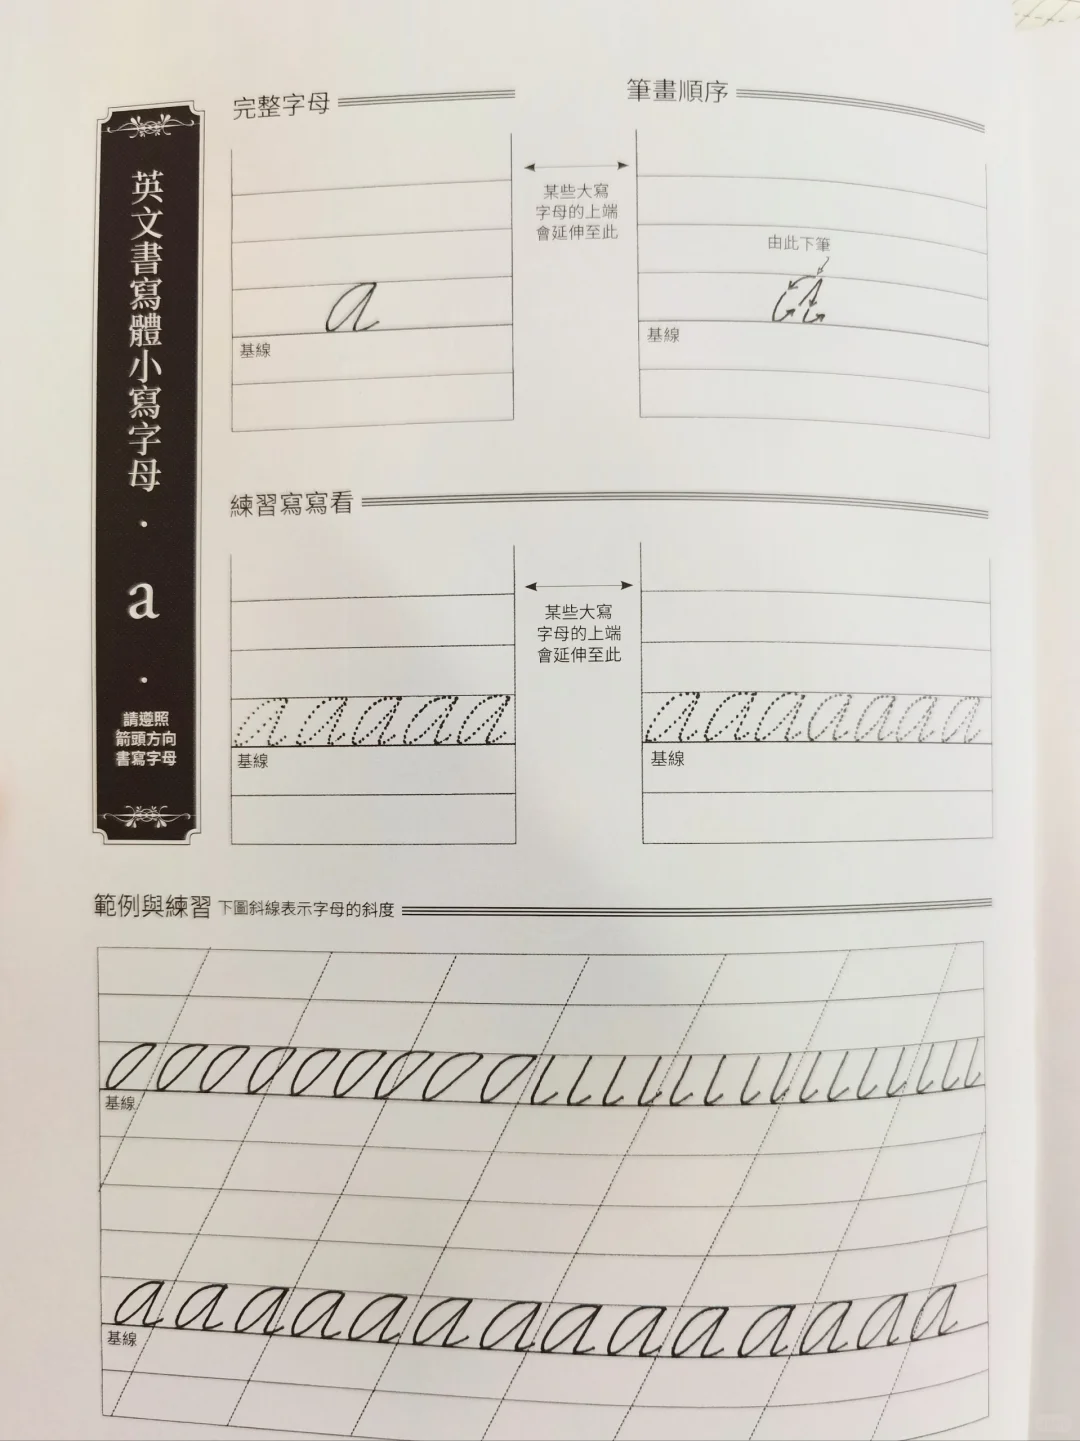 英文書寫體小寫字母・a・
請遵照
箭頭方向
書寫字母
完整字母
a
基線
某些大寫
字母的上端
會延伸至此
筆畫順序
由此下筆
a
基線
練習寫寫看
a a a a a
基線
某些大寫
字母的上端
會延伸至此
a a a a a a a
基線
範例與練習 下圖斜線表示字母的斜度
基線
a a a a a a a a a a a a a
基線